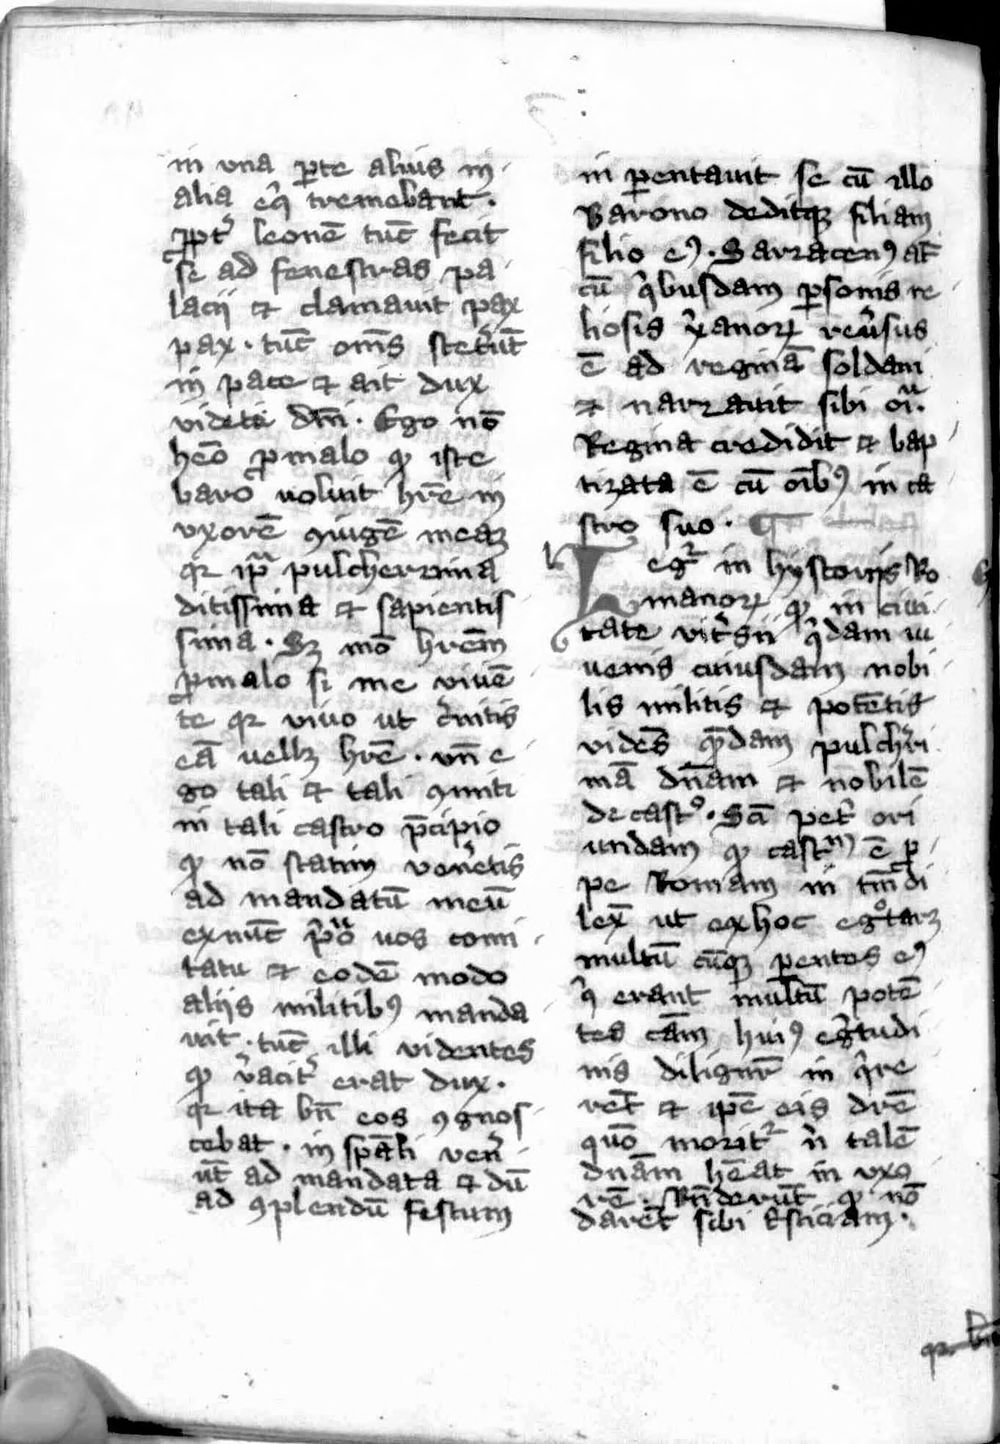 in una pte alius in
alia eq̃ tremebant.
ppt̃ leonē tūc fecit
se ad fenestras pa
lacij et clamavit pax
pax. tūc om̄s stetẽūt
in pace et ait dux
videte dn̄i. Ego nō
heō p malo qp iste
baro voluit hr̄e in
uxorē ꝯiugē meaꝫ
qr ip̃a pulcherrima
ditissima et sapientis
sima. Sꝫ mō hrem̄
p malo si me viuē
te qr viuo ut c̃nitis
eā vellꝫ hr̄e. vn̄ e
go tali et tali ꝯmiti
in tali castro p̄cipio
qp nō statim venẽtis
ad mandatū meū
ex nūc vos comi
tatu et eodē modo
aliis militibꝰ manda
vit. tūc illi videntes
qp ṽacit̃ erat dux.
qr ita bn̄ eos ꝯgnos
cebat. in sp̄ali venẽ
ūt ad mandata et dū
ad ꝯplendū festum
in pentavit se cū illo
Barono deditqꝫ filiam
filio eꝰ. Sarracenꝰ at̄
cū q̃busdam psonis re
liosis x̃anoꝝ reṽsus
ē ad reginā soldani
et narravit sibi oīa.
Regina credidit et bap
tizata ē cū oībꝰ in ca
stro suo.
Legr̃ in hystorijs Ro
manoꝝ qp in civi
tate q̃dam iu
venis cuiusdam nobi
lis militis et potētis
vidēs q̄dam pulchẽri
mā dn̄am et nobilē
de castꝰ. Sci pet̃ ori
undam qp castrm̄ ē p
pe Romam in tm̄ di
lex̄ ut ex hoc egͦtarꝫ
multū cūqꝫ pentes eꝰ
q̃ erant multū potē
tes cām huiꝰ egr̃tudi
nis diligent̃ in q̃re
rēt et ipē eis dr̄e
quō morit̃ ñ talē
dn̄am hēat in uxo
rē. Rn̄derūt qp nō
darēt sibi